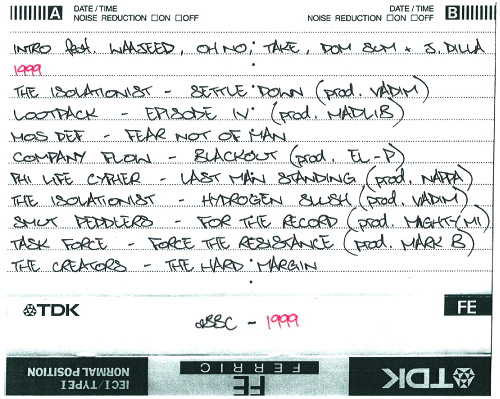 A DATE / TIME
NOISE REDUCTION □ON □OFF
DATE / TIME B
NOISE REDUCTION □ON □OFF
INTRO feat. WAAJEED, OH NO, TAKE, DOM SUM + J. DILLA
1999
THE ISOLATIONIST - SETTLE DOWN (prod. VADIM)
LOOTPACK - EPISODE IV (prod. MADLIB)
MOS DEF - FEAR NOT OF MAN
COMPANY FLOW - BLACKOUT (prod. EL-P)
PHI LIFE CYPHER - LAST MAN STANDING (prod. NAPPA)
THE ISOLATIONIST - HYDROGEN SLUSH (prod. VADIM)
SMUT PEDDLERS - FOR THE RECORD (prod. MIGHTY MI)
TASK FORCE - FORCE THE RESISTANCE (prod. MARK B)
THE CREATORS - THE HARD MARGIN
TDK
FE
BBC - 1999
IECI/TYPE I
NORMAL POSITION
FE
FERRIC
TDK